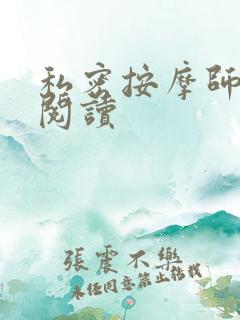 私密按摩師
閱讀
張震不樂
未经同意禁止转载